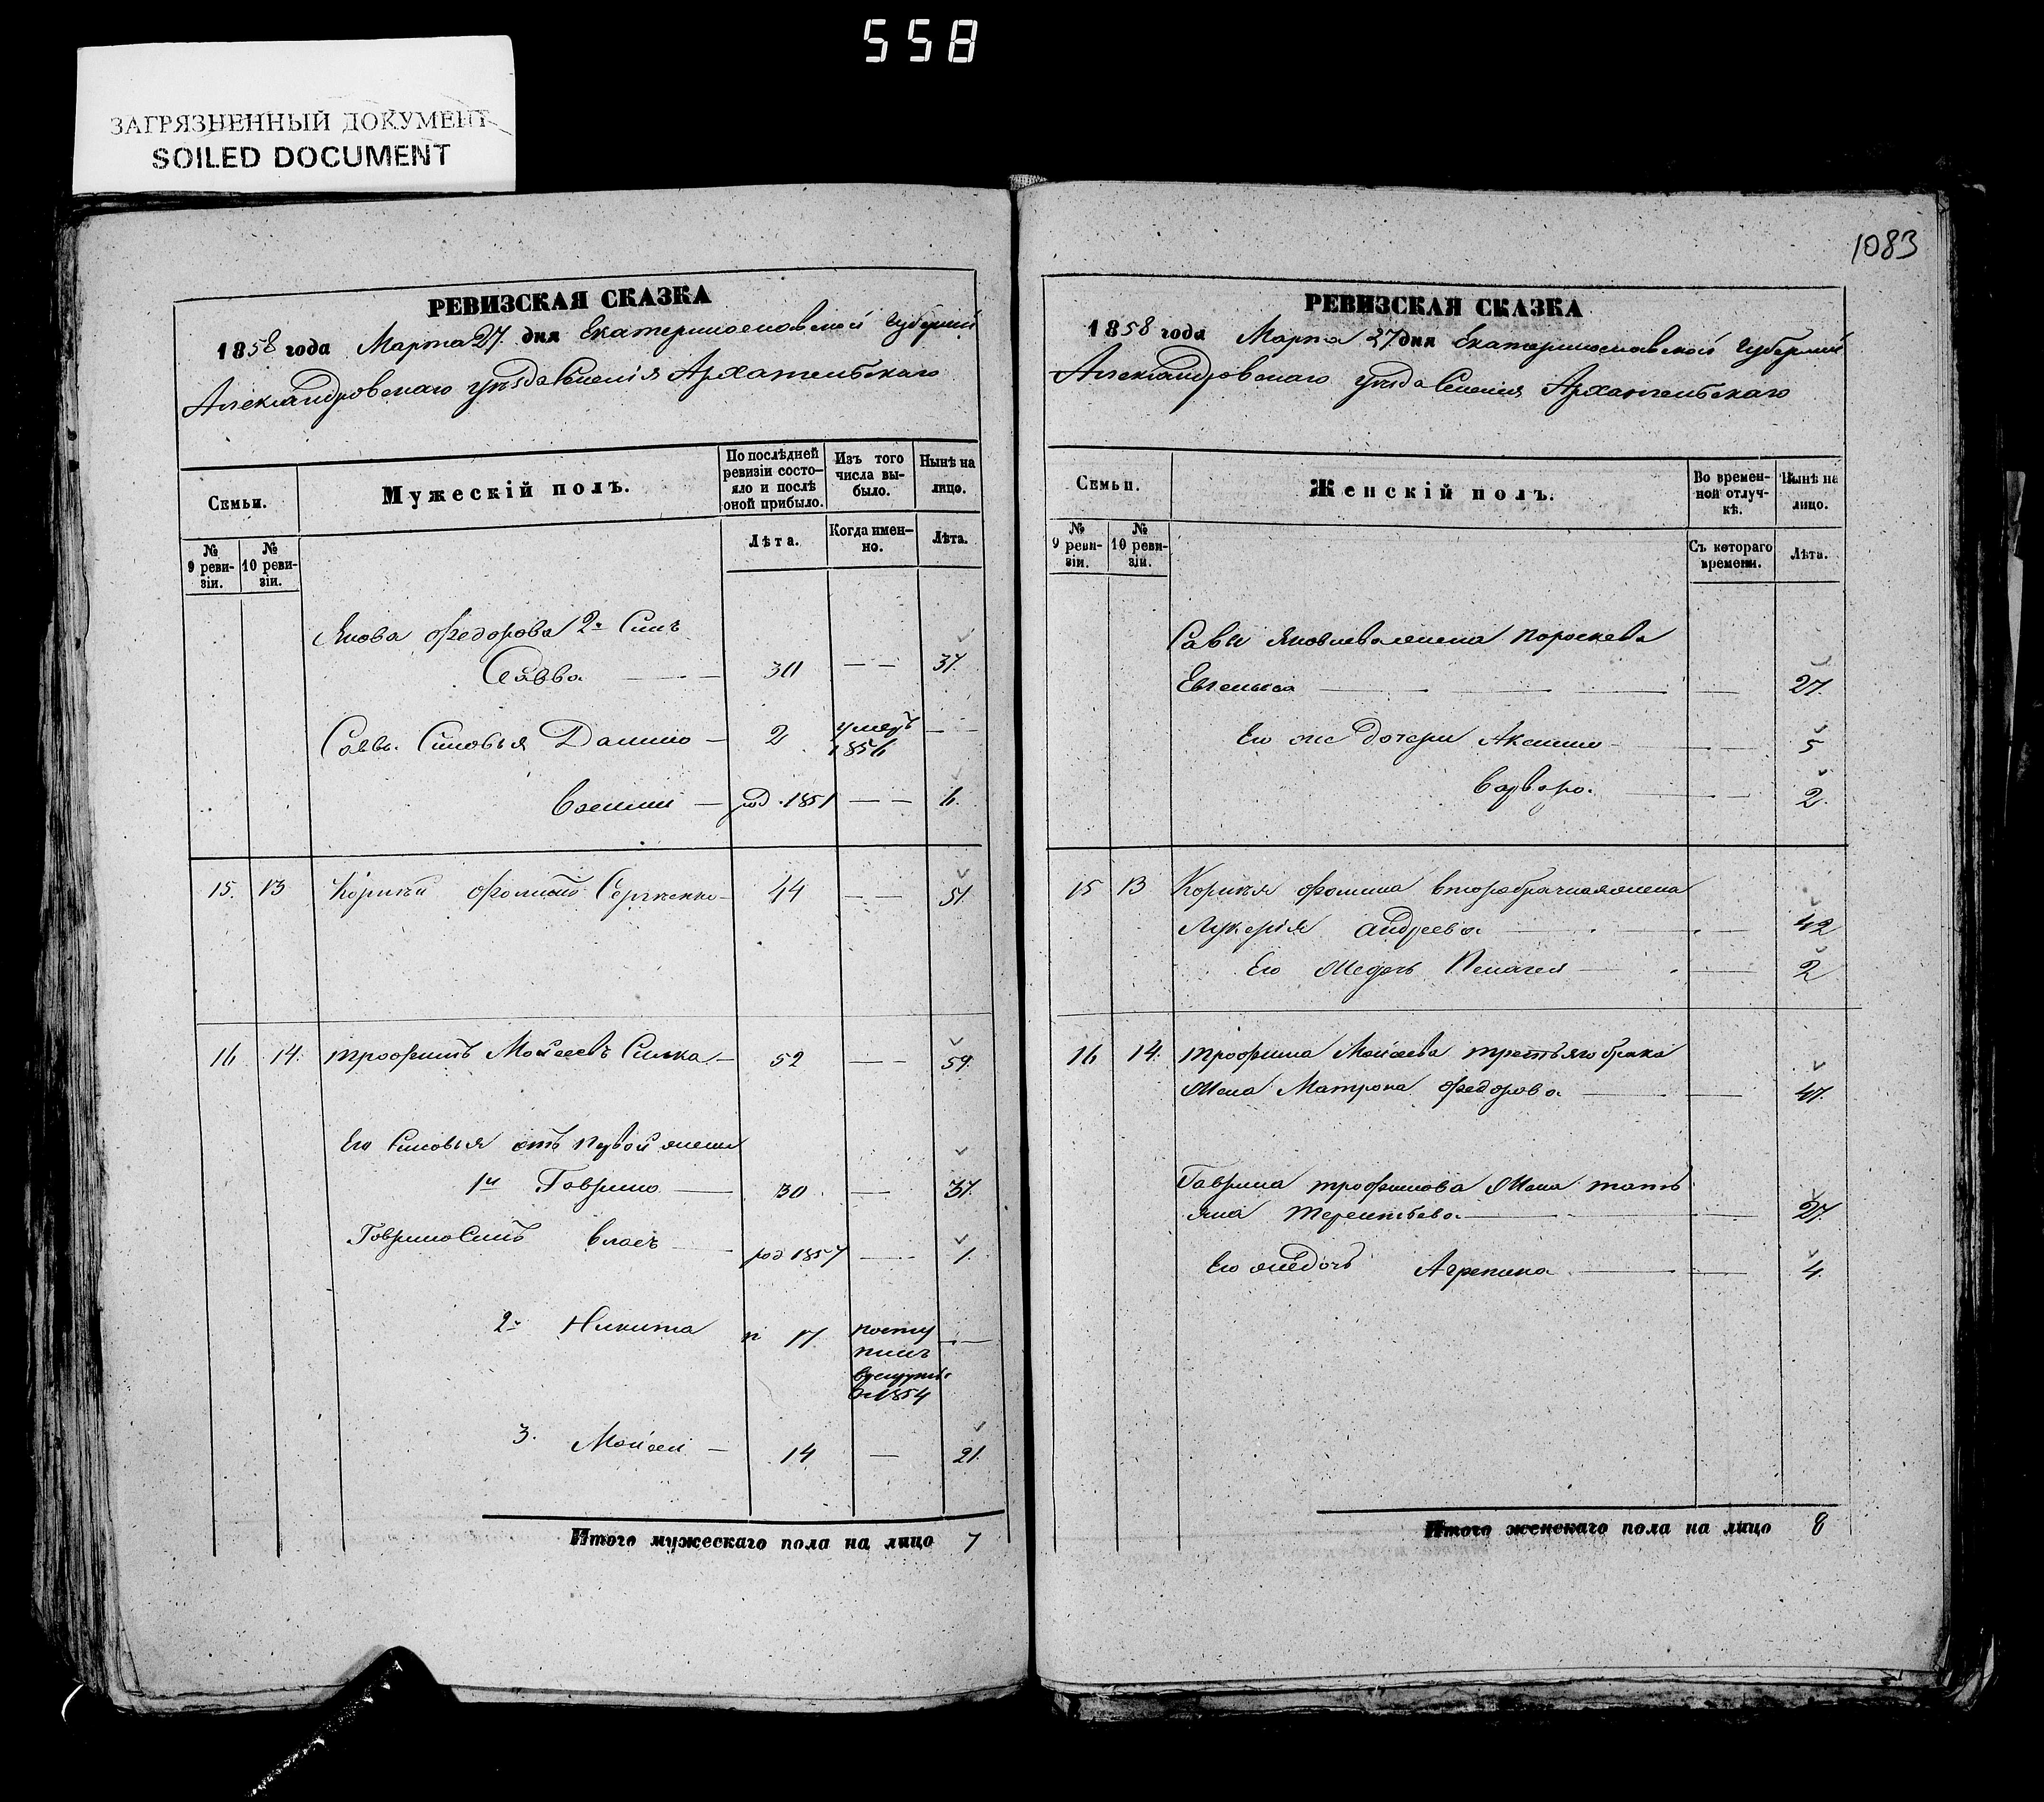 558
ЗАГРЯЗНЕННЫЙ ДОКУМЕНТ
SOILED DOCUMENT
РЕВИЗСКАЯ СКАЗКА
1858 года Марта 27 дня Екатеринославской губернии
Александровскаго уезда Селенiя Архангельскаго
Семьи.
Мужескiй полъ.
По послѣдней ревизiи состо-
яло и послѣ
оной прибыло.
Изъ того
числа вы-
было.
Нынѣ на
лицо.
№
9 реви-
зiи.
№
10 реви-
зiи.
Лѣта.
Когда имен-
но.
Лѣта.
Якова Федорова 2й Синъ
Савва 30 — — 37.
Саввы Синовья Данило 2 умеръ 1856 — —
род. 1851 — — 6.
15. 13 Фомичъ 44 — — 51.
16 14. Трофимъ Мойсеевъ 52 — — 59.
Его Синовья отъ первой жены
1й Гаврило 30 — 37.
Гаврила Синъ Власъ род 1857 — 1.
2й Никита 17. посту
пилъ
в 1854
3. Мойсей — 14 — 21.
Итого мужескаго пола на лицо 7
1083
РЕВИЗСКАЯ СКАЗКА
1858 года Марта 27 дня Екатеринославской губернии
Александровскаго уезда Селенiя Архангельскаго
Семьи.
Женскiй полъ.
Во времен-
ной отлуч-
кѣ.
Нынѣ на
лицо.
№
9 реви-
зiи.
№
10 реви-
зiи.
Съ котораго
времени.
Лѣта.
Савы Яковлева жена Пороскева
27.
Его же дочери 5
Варвара 2.
15 13 Фомича второбрачная жена
Лукерiя Андреева 42
Его же дочь Пелагея 2
16 14. Трофима Мойсеева третьяго брака
жена Матрона Федорова 47.
Гаврила Трофимова жена Тать
яна Терентьева 27.
Его же дочь Агрепина 4.
Итого женскаго пола на лицо 8